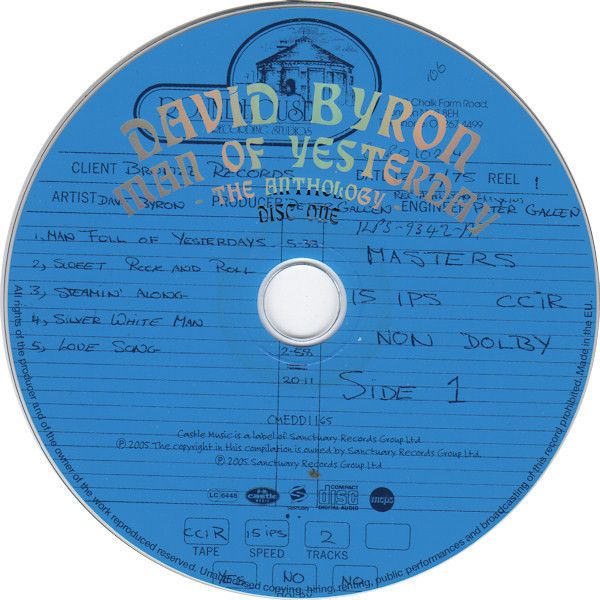 ROUNDHOUSE
RECORDING STUDIOS
106
Chalk Farm Road,
DAVID BYRON
MAN OF YESTERDAY
- THE ANTHOLOGY -
DISC ONE
CLIENT BRONZE RECORDS
75 REEL 1
ARTIST DAVID BYRON PRODUCER PETER GALLEN ENGINEER PETER GALLEN
ILPS-9342-A
MASTERS
1, MAN FULL OF YESTERDAYS 5-33
2, SWEET ROCK AND ROLL
3, STEAMIN' ALONG
15 IPS CCIR
4, SILVER WHITE MAN
NON DOLBY
5, LOVE SONG 2-58
20-11
SIDE 1
CMEDD1165
Castle Music is a label of Sanctuary Records Group Ltd.
℗ 2005 The copyright in this compilation is owned by Sanctuary Records Group Ltd.
© 2005 Sanctuary Records Group Ltd
LC 6448 castle Sanctuary COMPACT disc DIGITAL AUDIO mcps
CCIR 15 IPS 2
TAPE SPEED TRACKS
YES NO NO
DOLBY
All rights of the producer and of the owner of the work reproduced reserved. Unauthorised copying, hiring, renting, public performances and broadcasting of this record prohibited. Made in the EU.